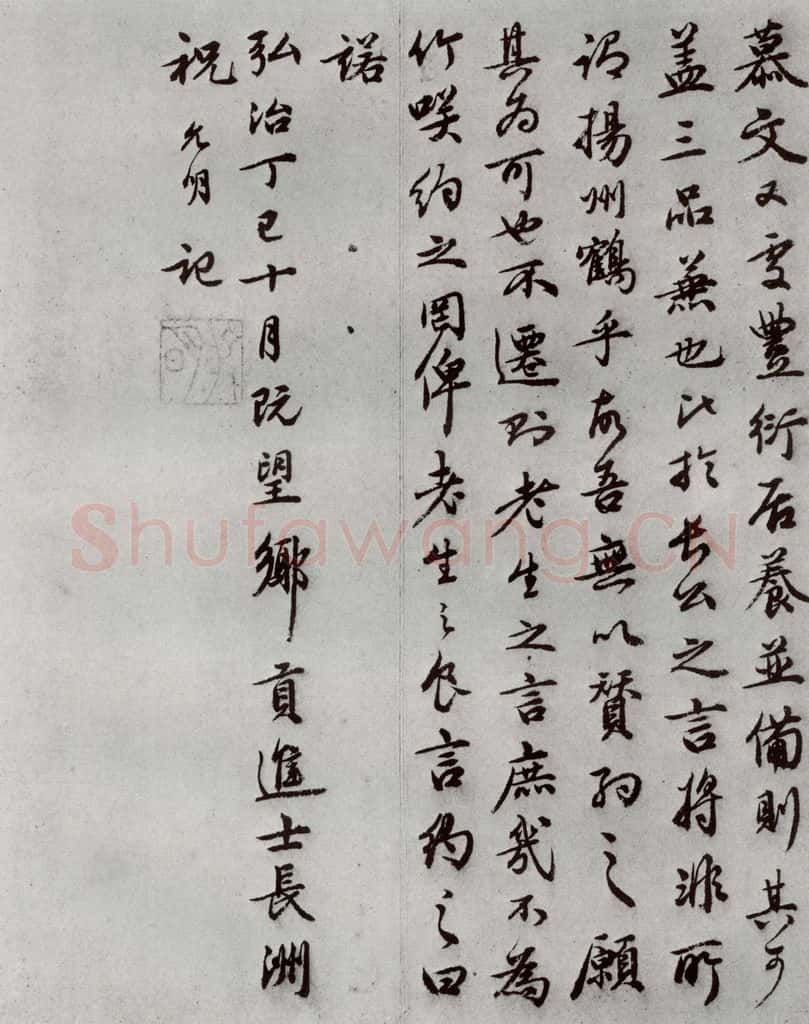 慕文又處豐衍居養並備則其可
蓋三品兼也比於長公之言將非所
謂揚州鶴乎故吾無以贊約之願
其為可也不遷則老生之言庶幾不為
竹咲約之因俾老生之良言約之曰
諾
弘治丁巳十月既望鄉貢進士長洲
祝允明記
Shufawang.CN